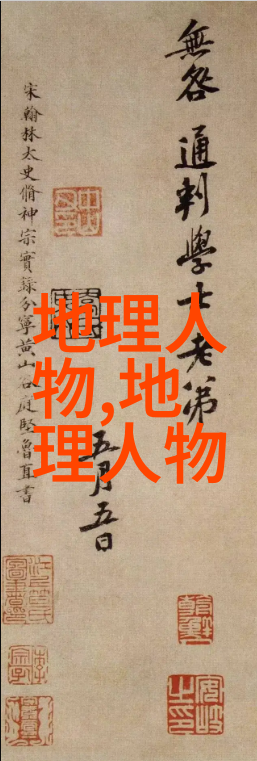 無咎 通判學士老弟
五月五日
宋翰林太史脩神宗實錄分寧黃山谷庭堅魯直書
地理人
物,地
理人物